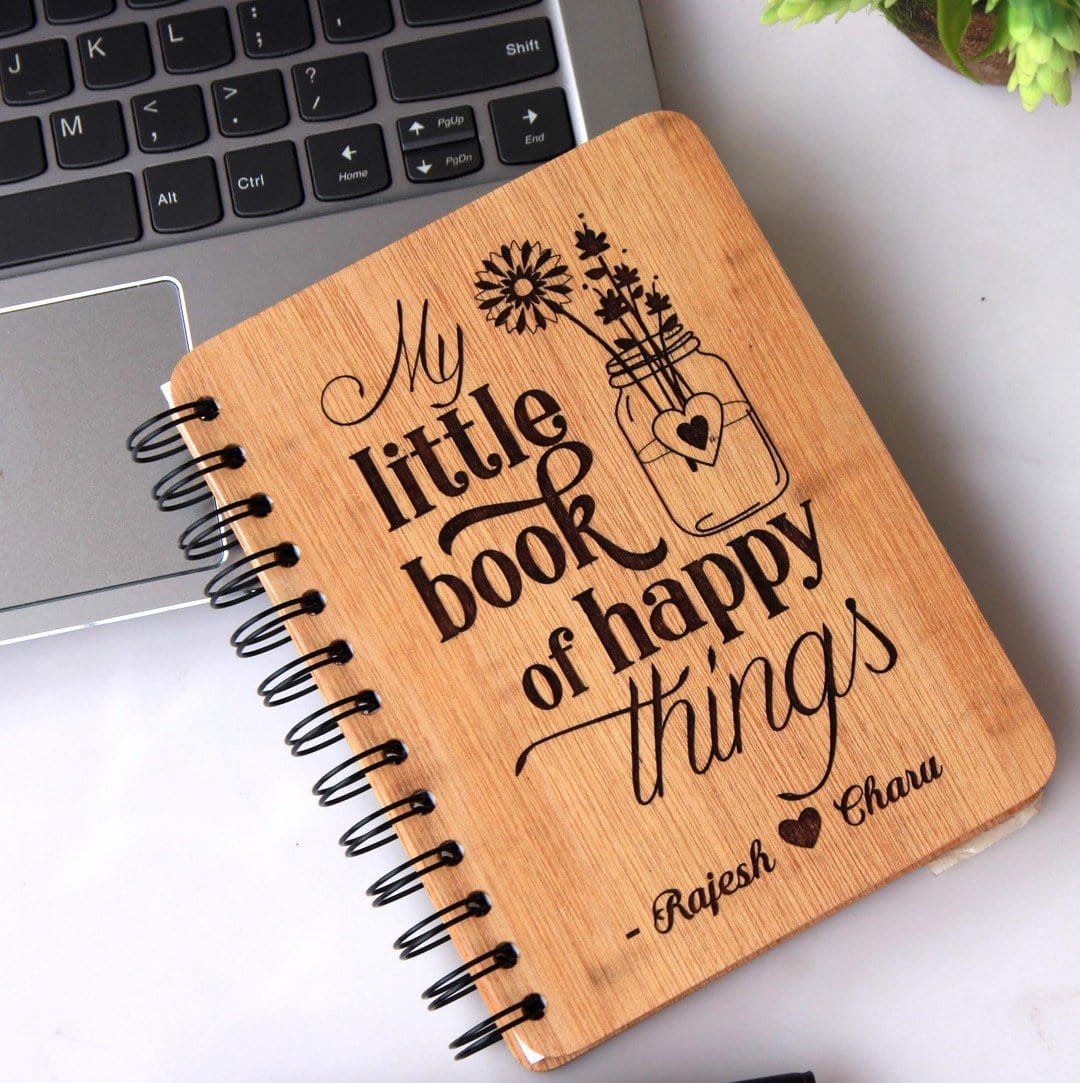 J K L : ;
Shift
M < , > . ? /
PgUp
End
Alt Ctrl Home PgDn
My
little
book
of happy
things
- Rajesh ♥ Charu